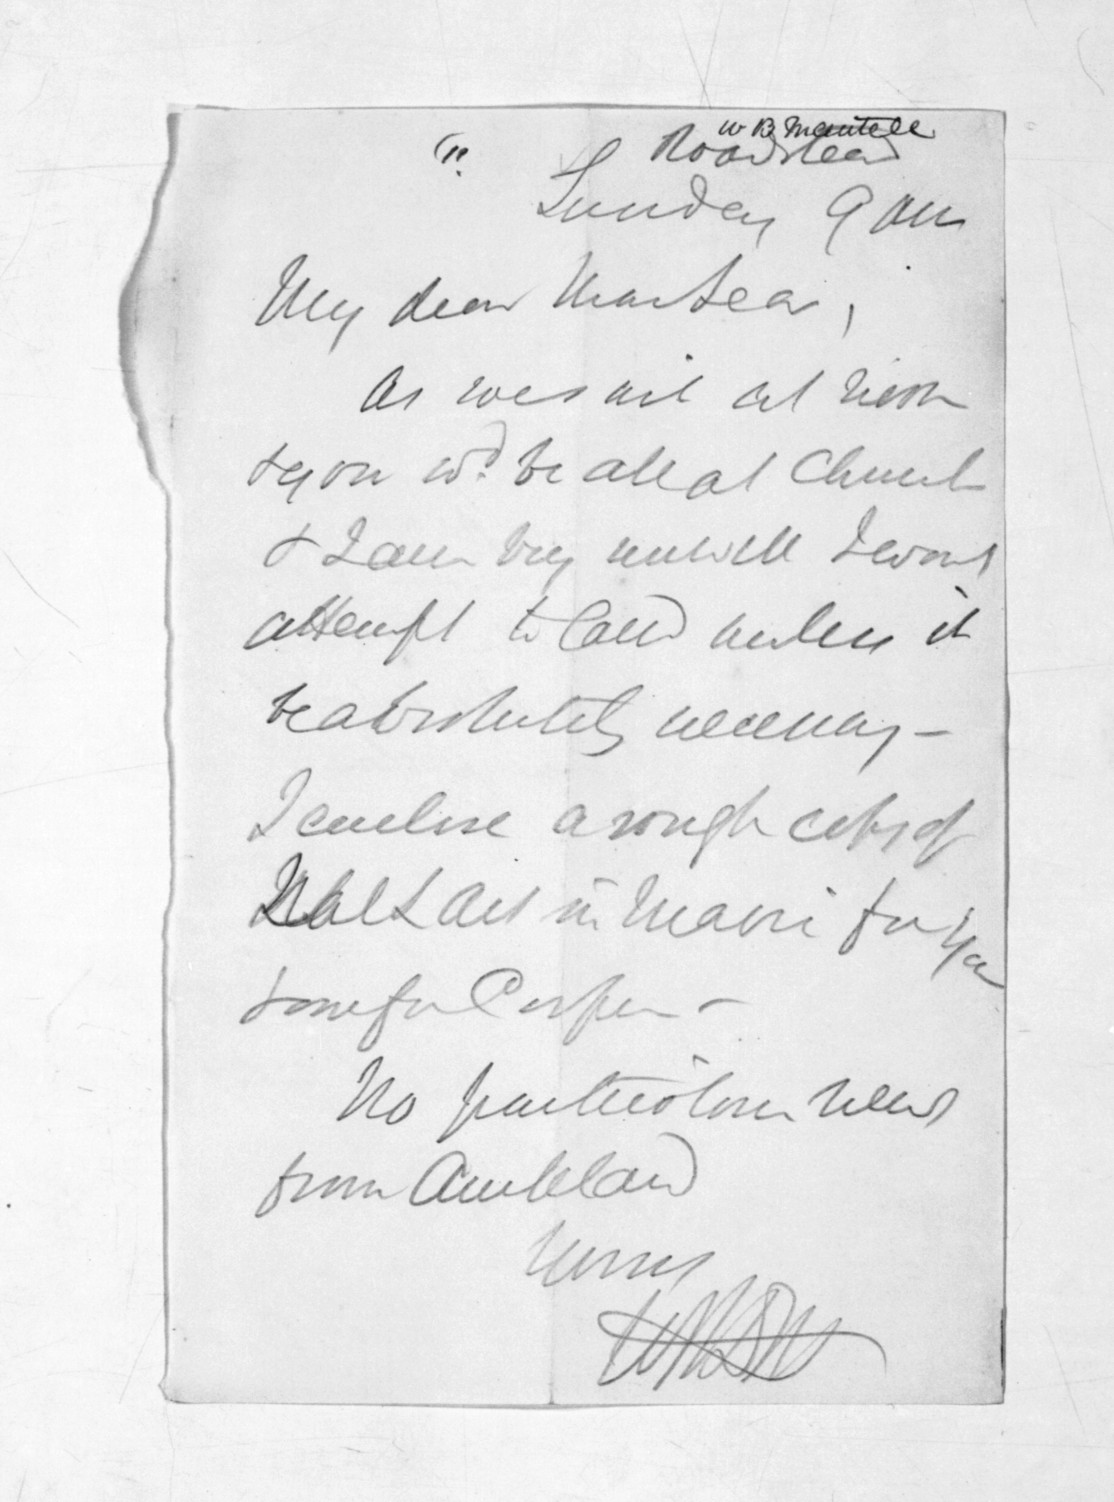 W B Mantell
Roadstead
Sunday 9 am
My dear McLean,
As we sail at noon
& you wd. be all at Church
& I am very unwell I wont
attempt to land unless it
be absolutely necessary -
I enclose a rough copy of
Act in Maori for you
& one for Cooper -
No particular news
from Auckland
Yours
WBDM